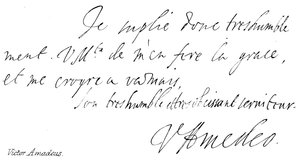 Je suplie donc treshumble
ment. V M.té de m'en fire la grace,
et me croyre a
Son treshumble et serviteur.
VAmedeo.
Victor Amadeus.